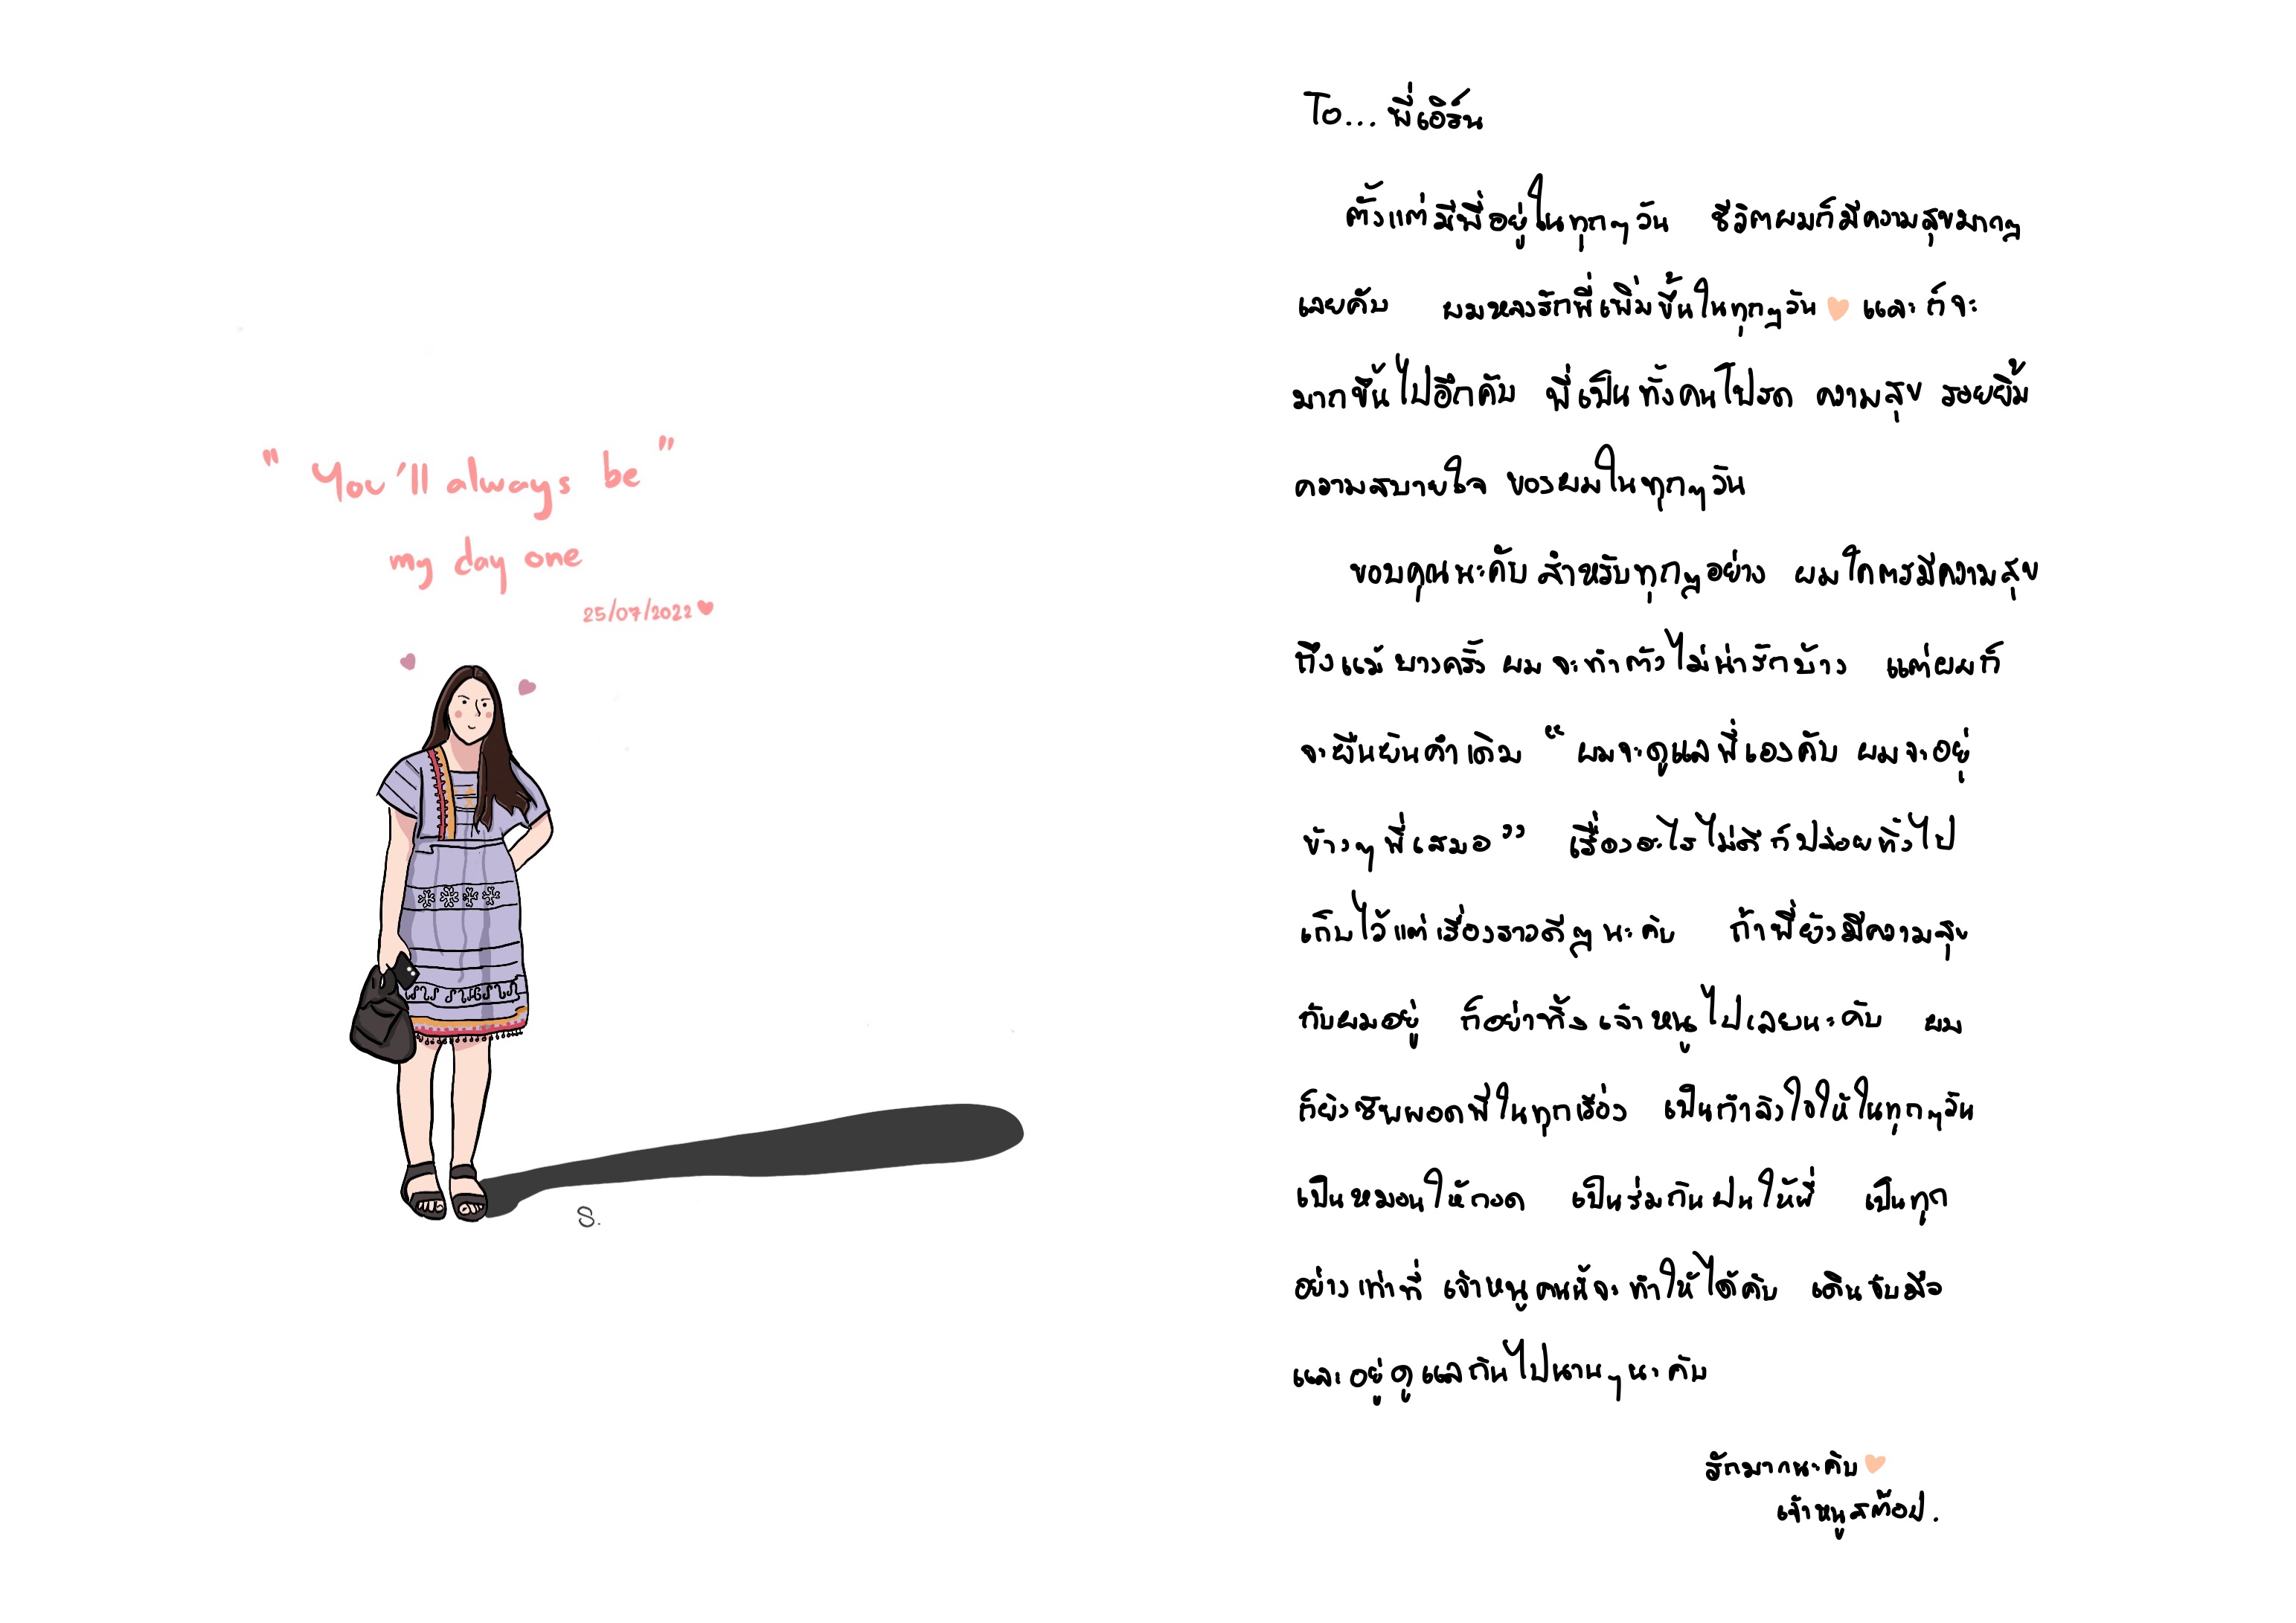 " You'll always be "
my day one
25/07/2022
S.
To... พี่เอิร์น
ตั้งแต่มีพี่อยู่ในทุกๆวัน ชีวิตผมก็มีความสุขมากๆ
เลยคับ ผมหลงรักพี่เพิ่มขึ้นในทุกๆวัน และก็จะ
มากขึ้นไปอีกคับ พี่เป็นทั้งคนโปรด ความสุข รอยยิ้ม
ความสบายใจ ของผมในทุกๆวัน
ขอบคุณนะคับ สำหรับทุกๆอย่าง ผมโคตรมีความสุข
ถึงแม้ บางครั้ง ผมจะทำตัวไม่น่ารักบ้าง แต่ผมก็
จะยืนยันคำเดิม “ ผมจะดูแลพี่เองคับ ผมจะอยู่
ข้างๆพี่เสมอ ” เรื่องอะไรไม่ดีก็ปล่อยทิ้งไป
เก็บไว้แต่เรื่องราวดีๆนะคับ ถ้าพี่ยังมีความสุข
กับผมอยู่ ก็อย่าทิ้งเจ้าหนูไปเลยนะคับ ผม
ก็ยังซัพพอตพี่ในทุกเรื่อง เป็นกำลังใจให้ในทุกๆวัน
เป็นหมอนให้กอด เป็นร่มกันฝนให้พี่ เป็นทุก
อย่างเท่าที่ เจ้าหนูคนนี้จะทำให้ได้คับ เดินจับมือ
และอยู่ดูแลกันไปนานๆนะคับ
รักมากนะคับ
เจ้าหนูสต๊อป.